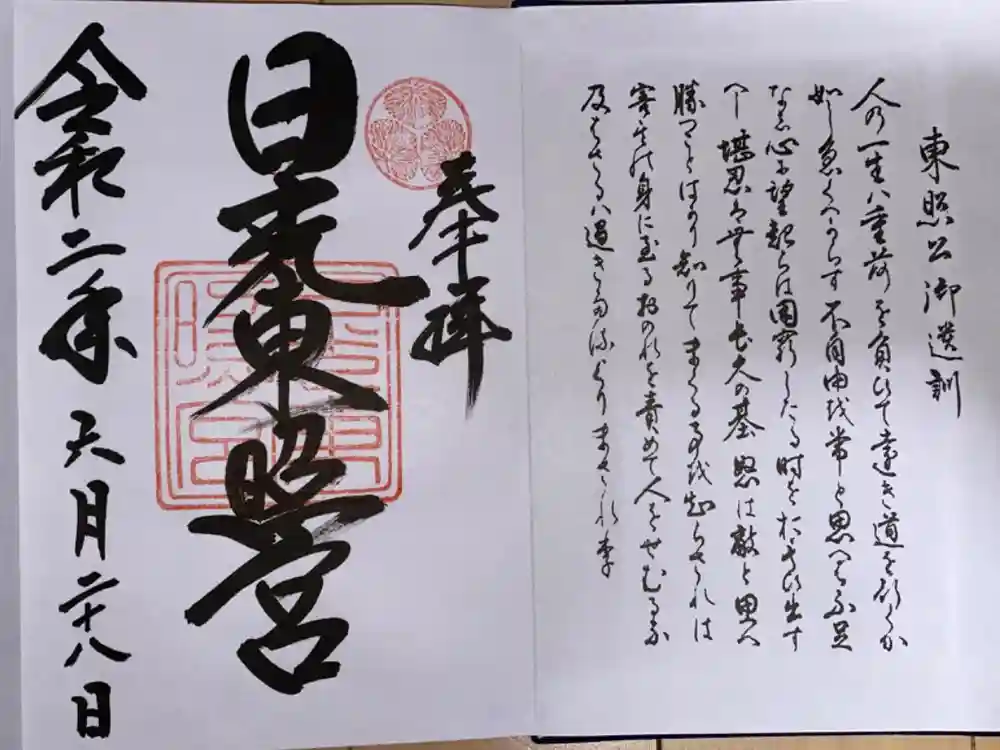 東照公御遺訓
人の一生ハ重荷を負ひて遠き道を行くか
如し急くへからす 不自由を常と思へは不足
なし心に望起らは困窮したる時をおもひ出す
へし 堪忍は無事長久の基 怒は敵と思へ
勝つことはかり知りてまくる事を知らされは
害其の身に至る おのれを責めて人をせむるな
及はさるハ過きたるよりまされり
奉拝
日光東照宮
令和二年 六月二十八日